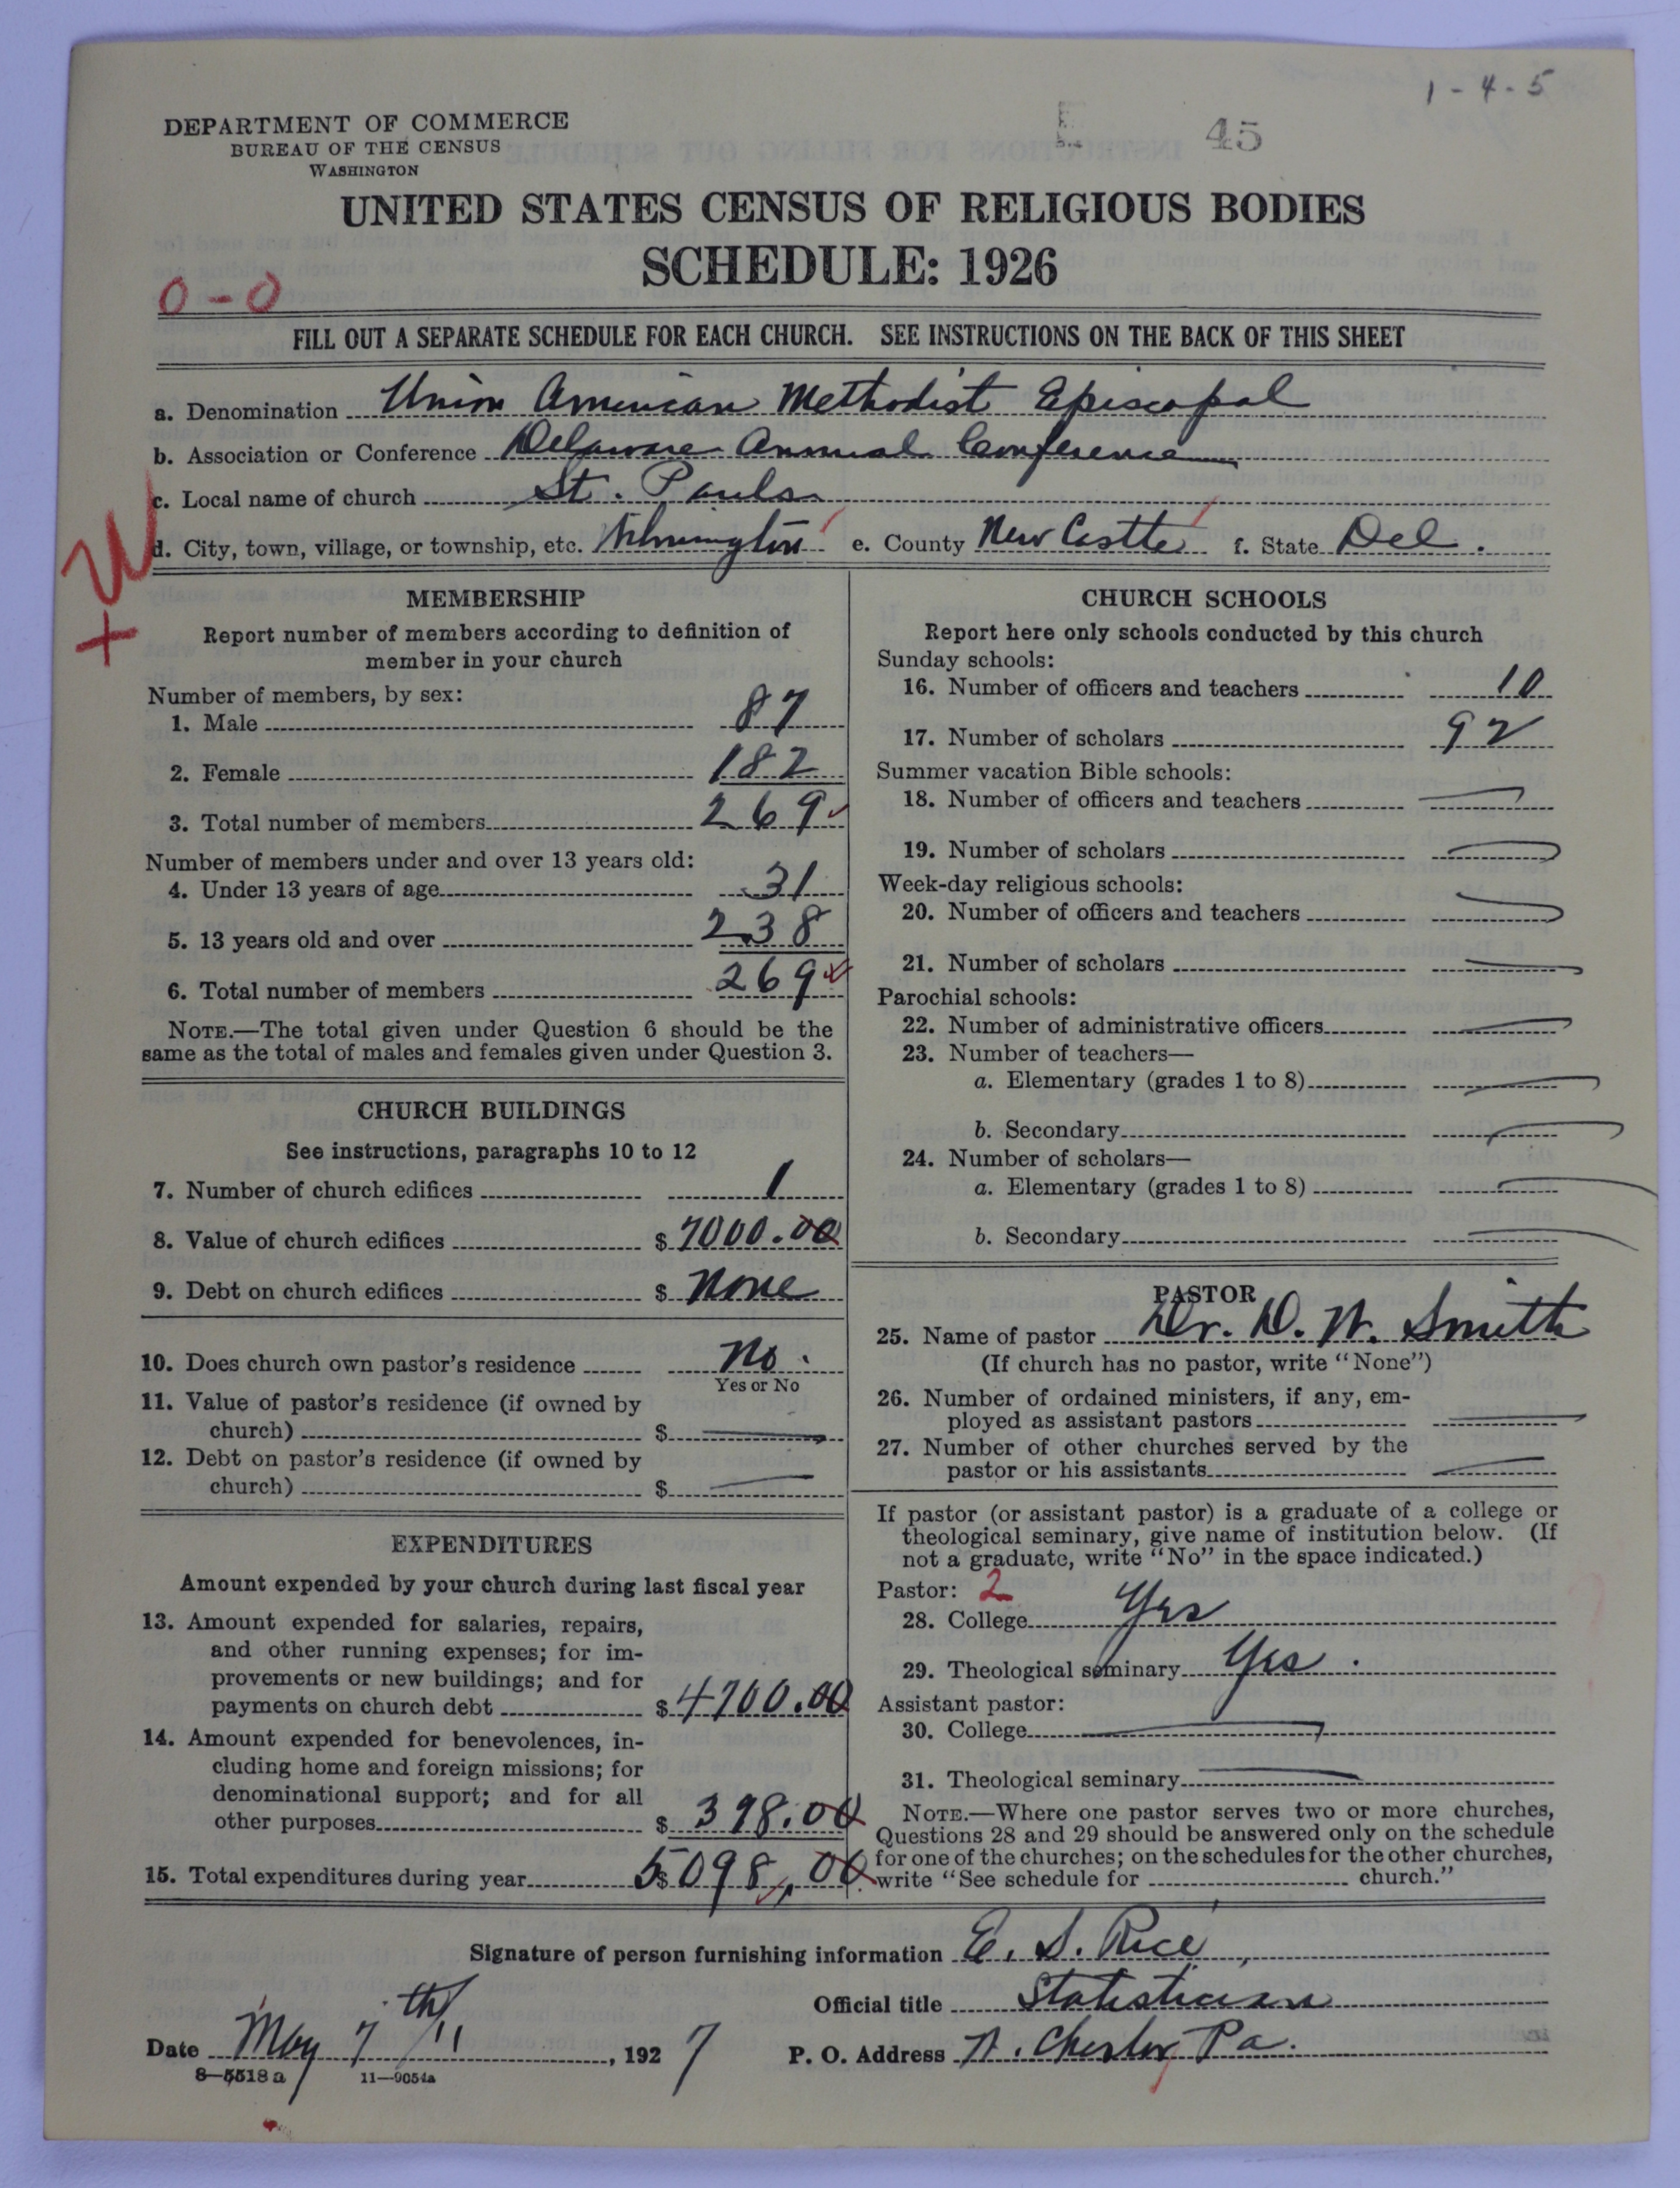 1-4-5
DEPARTMENT OF COMMERCE
BUREAU OF THE CENSUS
WASHINGTON
45
UNITED STATES CENSUS OF RELIGIOUS BODIES
SCHEDULE: 1926
0-0
FILL OUT A SEPARATE SCHEDULE FOR EACH CHURCH. SEE INSTRUCTIONS ON THE BACK OF THIS SHEET
a. Denomination Union American Methodist Episcopal
b. Association or Conference Delaware Annual Conference
c. Local name of church St. Pauls
d. City, town, village, or township, etc. Wilmington e. County New Castle f. State Del.
MEMBERSHIP
Report number of members according to definition of
member in your church
Number of members, by sex:
1. Male 87
2. Female 182
3. Total number of members 269
Number of members under and over 13 years old:
4. Under 13 years of age 31
5. 13 years old and over 238
6. Total number of members 269
NOTE.—The total given under Question 6 should be the
same as the total of males and females given under Question 3.
CHURCH BUILDINGS
See instructions, paragraphs 10 to 12
7. Number of church edifices 1
8. Value of church edifices $ 7000.00
9. Debt on church edifices $ None
10. Does church own pastor's residence No.
Yes or No
11. Value of pastor's residence (if owned by
church) $
12. Debt on pastor's residence (if owned by
church) $
EXPENDITURES
Amount expended by your church during last fiscal year
13. Amount expended for salaries, repairs,
and other running expenses; for im-
provements or new buildings; and for
payments on church debt $ 4700.00
14. Amount expended for benevolences, in-
cluding home and foreign missions; for
denominational support; and for all
other purposes $ 398.00
15. Total expenditures during year $ 5098.00
CHURCH SCHOOLS
Report here only schools conducted by this church
Sunday schools:
16. Number of officers and teachers 10
17. Number of scholars 92
Summer vacation Bible schools:
18. Number of officers and teachers
19. Number of scholars
Week-day religious schools:
20. Number of officers and teachers
21. Number of scholars
Parochial schools:
22. Number of administrative officers
23. Number of teachers—
a. Elementary (grades 1 to 8)
b. Secondary
24. Number of scholars—
a. Elementary (grades 1 to 8)
b. Secondary
PASTOR
25. Name of pastor Dr. D. W. Smith
(If church has no pastor, write "None")
26. Number of ordained ministers, if any, em-
ployed as assistant pastors
27. Number of other churches served by the
pastor or his assistants
If pastor (or assistant pastor) is a graduate of a college or
theological seminary, give name of institution below. (If
not a graduate, write "No" in the space indicated.)
Pastor: 2
28. College Yes
29. Theological seminary Yes.
Assistant pastor:
30. College
31. Theological seminary
NOTE.—Where one pastor serves two or more churches,
Questions 28 and 29 should be answered only on the schedule
for one of the churches; on the schedules for the other churches,
write "See schedule for church."
Signature of person furnishing information E. S. Rice
Official title Statistician
Date May 7th, 1927 P. O. Address W. Chester, Pa.
8—5518a 11—9054a